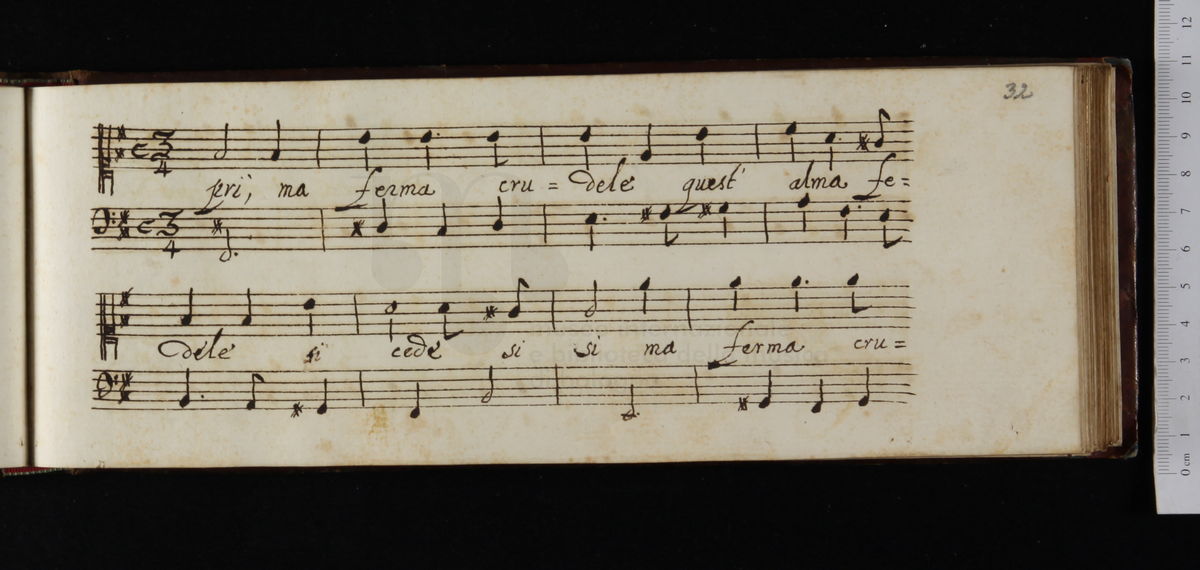 32
3
4
peri, ma ferma cru = dele quest' alma fe=
3
4
dele si cede si si ma ferma cru=
0 cm 1 2 3 4 5 6 7 8 9 10 11 12